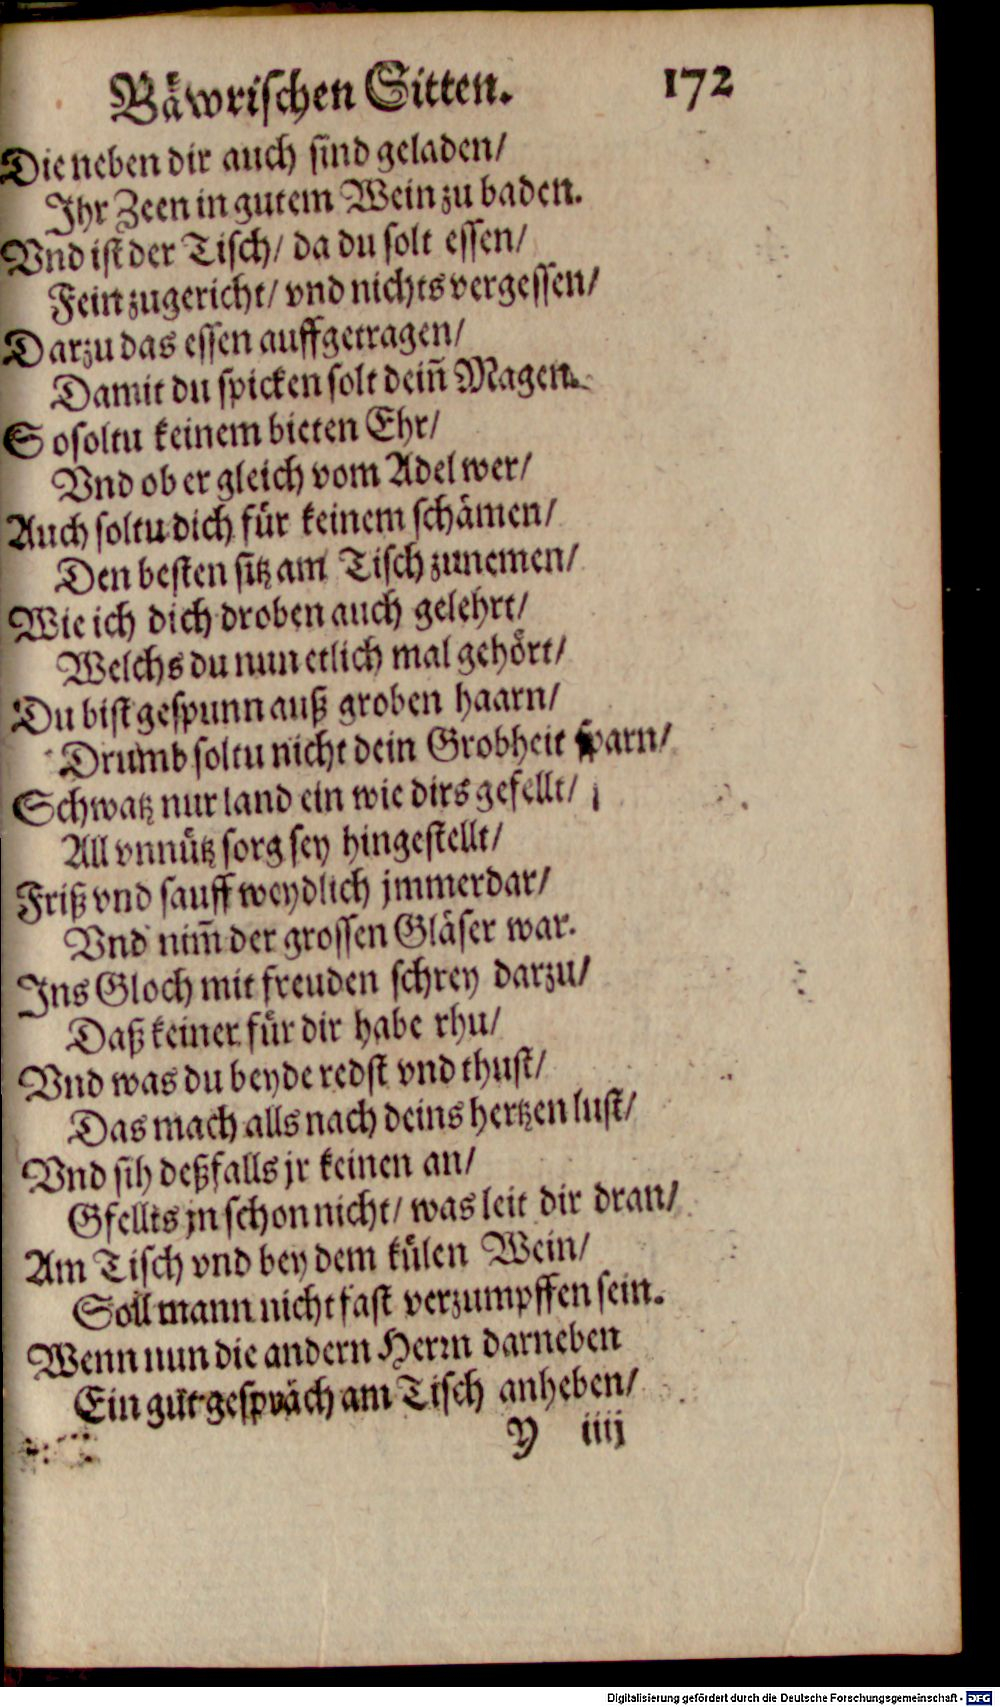 Bäwrischen Sitten. 172
Die neben dir auch sind geladen/
Ihr Zeen in gutem Wein zu baden.
Vnd ist der Tisch/ da du solt essen/
Fein zugericht/ vnd nichts vergessen/
Darzu das essen auffgetragen/
Damit du spicken solt deiñ Magen.
So soltu keinem bieten Ehr/
Vnd ob er gleich vom Adel wer/
Auch soltu dich für keinem schämen/
Den besten sitz am Tisch zunemen/
Wie ich dich droben auch gelehrt/
Welchs du nun etlich mal gehört/
Du bist gespunn auß groben haarn/
Drumb soltu nicht dein Grobheit sparn/
Schwatz nur land ein wie dirs gefellt/
All vnnütz sorg sey hingestellt/
Friß vnd sauff weydlich jmmerdar/
Vnd nim̃ der grossen Gläser war.
Ins Gloch mit freuden schrey darzu/
Daß keiner für dir habe rhu/
Vnd was du beyde redst vnd thust/
Das mach alls nach deins hertzen lust/
Vnd sih deßfalls jr keinen an/
Gfellts jn schon nicht/ was leit dir dran/
Am Tisch vnd bey dem külen Wein/
Soll mann nicht fast verzumpffen sein.
Wenn nun die andern Herrn darneben
Ein gut gespräch am Tisch anheben/
Y iiij
Digitalisierung gefördert durch die Deutsche Forschungsgemeinschaft - DFG